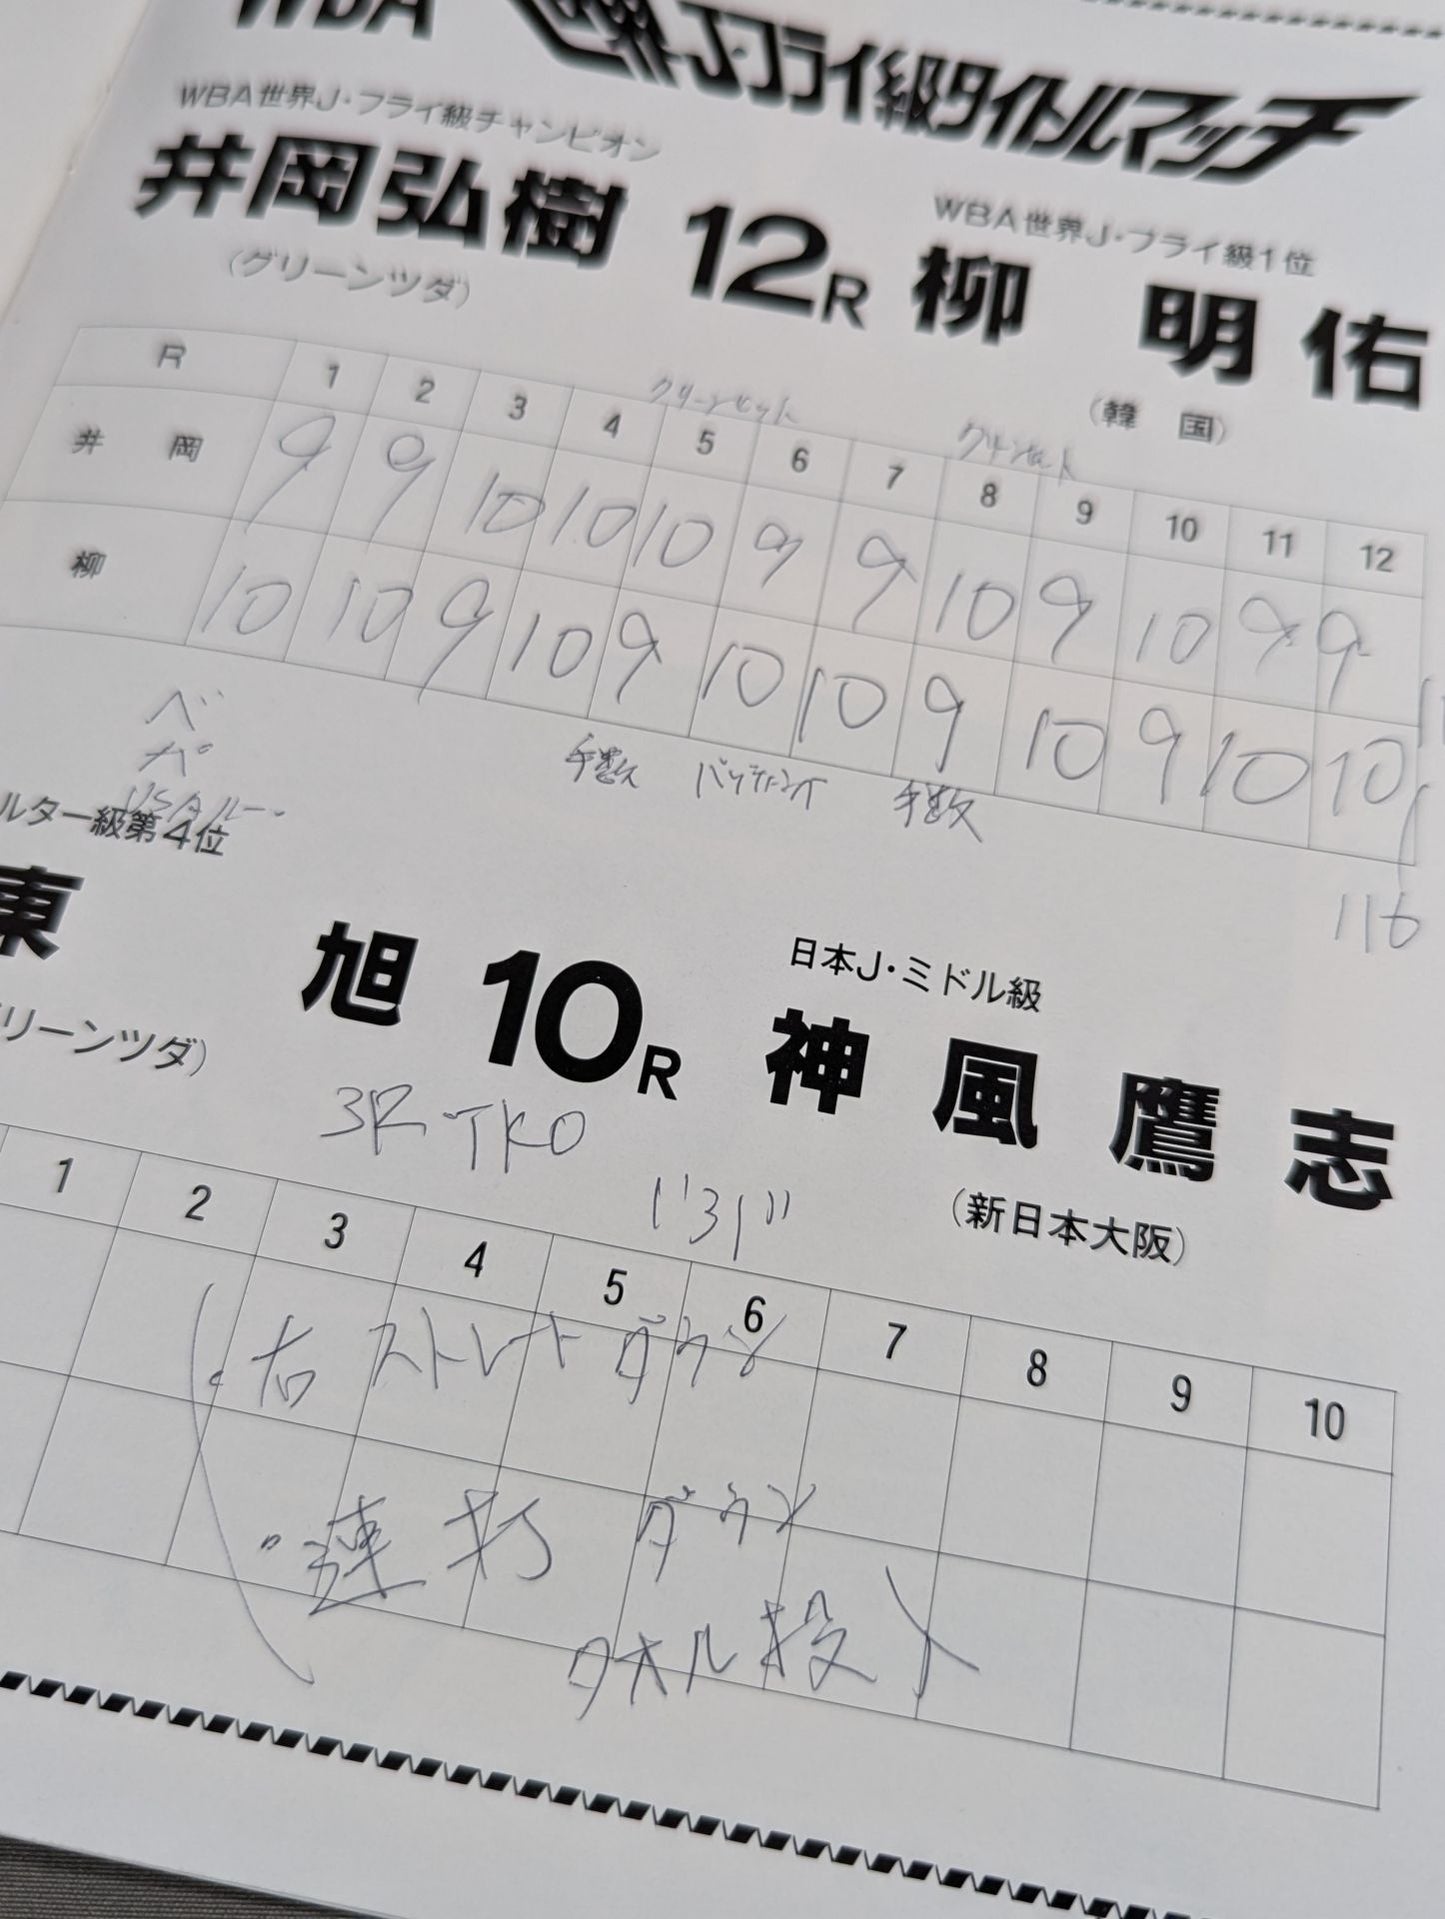 WBA世界J・フライ級タイトルマッチ
WBA世界J・フライ級チャンピオン
井岡弘樹 12R 柳 明 佑
WBA世界J・フライ級1位
(グリーンツダ)
(韓 国)
クリーンヒット
クリーンヒット
R 1 2 3 4 5 6 7 8 9 10 11 12
井 岡 9 9 10 10 10 9 9 10 9 10 9 9
柳 10 10 9 10 9 10 10 9 10 9 10 10
手数 バッティング 手数
116
ルター級第4位
日本J・ミドル級
東 旭 10R 神 風 鷹 志
リーンツダ)
(新日本大阪)
3R TKO
1'31"
1 2 3 4 5 6 7 8 9 10
・右ストレートダウン
・連打 ダウン
タオル投入